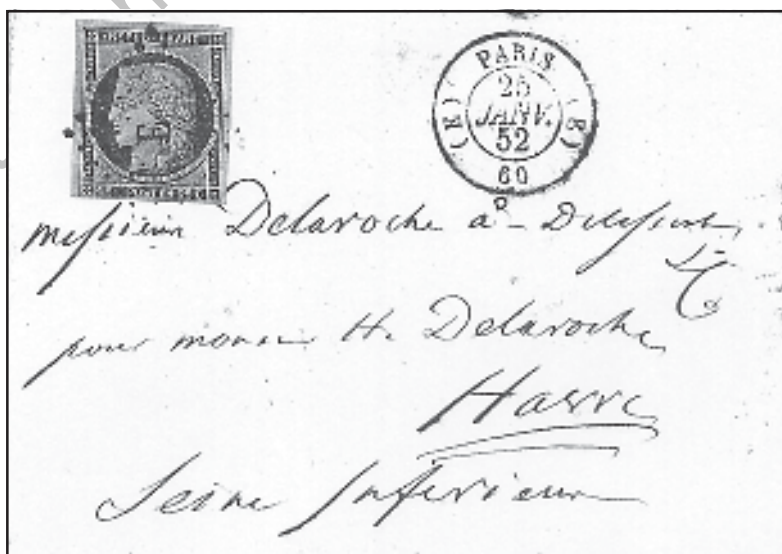 PARIS
25
JANV.
52
(E) (E)
60
Messieurs Delaroche a- Delessert
pour monsr H. Delaroche
Havre
Seine Inferieure